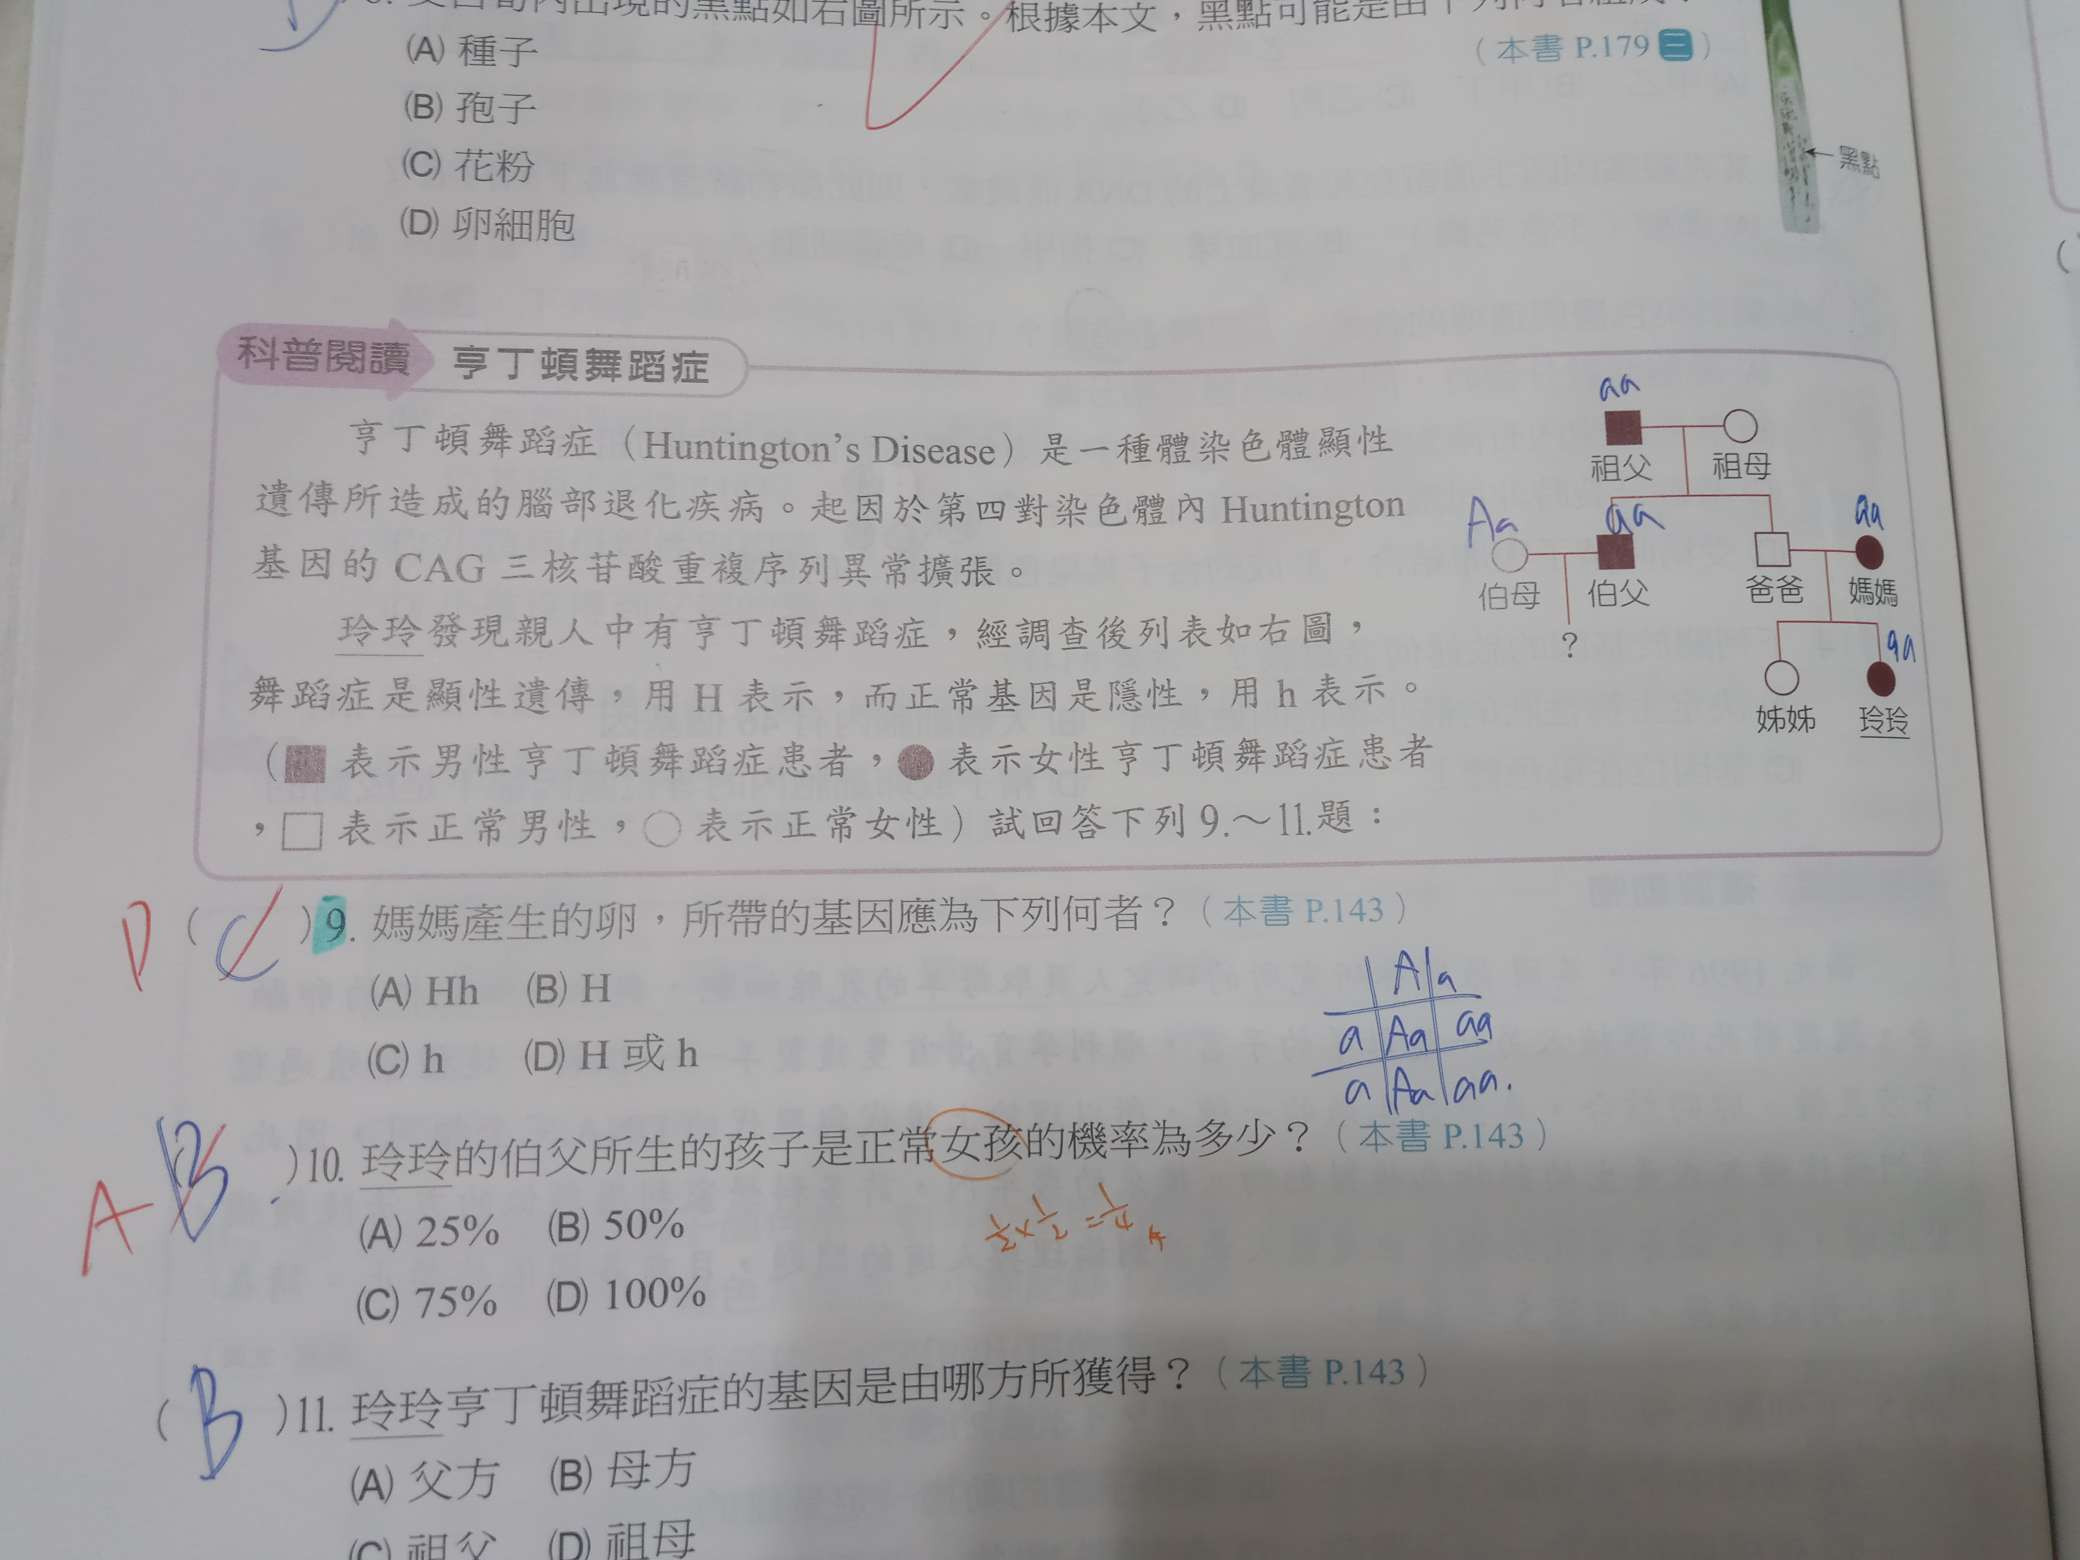 圖所示。根據本文，黑點可能是由下列何者組成？
(A) 種子
(本書 P.179 三)
(B) 孢子
(C) 花粉
黑點
(D) 卵細胞
科普閱讀 亨丁頓舞蹈症
亨丁頓舞蹈症（Huntington's Disease）是一種體染色體顯性
遺傳所造成的腦部退化疾病。起因於第四對染色體內 Huntington
基因的 CAG 三核苷酸重複序列異常擴張。
玲玲發現親人中有亨丁頓舞蹈症，經調查後列表如右圖，
舞蹈症是顯性遺傳，用 H 表示，而正常基因是隱性，用 h 表示。
（ 表示男性亨丁頓舞蹈症患者， 表示女性亨丁頓舞蹈症患者
， 表示正常男性， 表示正常女性）試回答下列 9.～11.題：
aa
祖父 祖母
Aa aa aa
伯母 伯父 爸爸 媽媽
?
aa
姊姊 玲玲
D ( C )9. 媽媽產生的卵，所帶的基因應為下列何者？（本書 P.143）
(A) Hh (B) H
(C) h (D) H 或 h
A a
a Aa aa
a Aa aa.
A B )10. 玲玲的伯父所生的孩子是正常女孩的機率為多少？（本書 P.143）
(A) 25% (B) 50%
1/2 × 1/2 = 1/4
(C) 75% (D) 100%
( B )11. 玲玲亨丁頓舞蹈症的基因是由哪方所獲得？（本書 P.143）
(A) 父方 (B) 母方
(C) 祖父 (D) 祖母